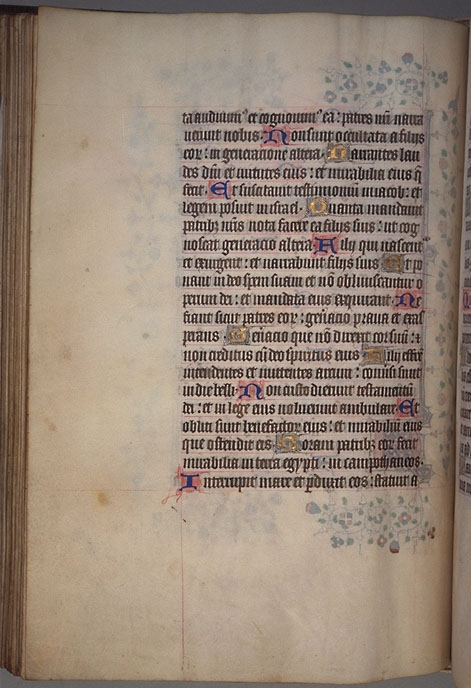 ta audiuim᷒ et cognouim᷒ ea: patres nr̄i narra
uerunt nobis. Non sunt occultata a filijs
eoꝝ: in generatione altera. Narrantes lau
des dn̄i et uirtutes eius: et mirabilia eius q̄
fecit. Et suscitauit testimonium in iacob: et
legem posuit in israel. Quanta mandauit
patribꝫ nr̄is nota facere ea filijs suis: ut cog
noscat generacio altera. Filij qui nascent̄
et exurgent: et narrabunt filijs suis. Et po
nant in deo spem suam et nō obliuiscantur o
perum dei: et mandata eius exquirant. Ne
fiant sicut patres eoꝝ: gen̄atio praua et exas
perans. Gen̄acio que nō direxit cor suū: ⁊
non creditus cū deo spiritus eius. Filij effrē
intendentes et mittentes arcum: conuersi sunt
in die belli. Non custodierunt testamentū
dei: et in lege eius noluerunt ambulare. Et
obliti sunt benefactoꝝ eius: et mirabiliū eius
que ostendit eis. Coram patribꝫ eoꝝ fecit
mirabilia in terra egypti: in campo thaneos.
Interrupit mare et ꝑduxit eos: statuit a